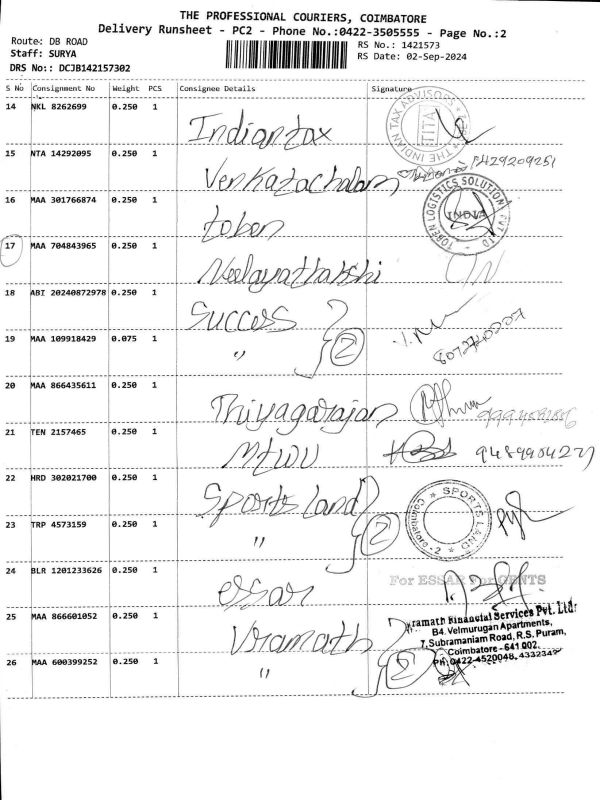 THE PROFESSIONAL COURIERS, COIMBATORE
Delivery Runsheet - PC2 - Phone No.:0422-3505555 - Page No.:2
Route: DB ROAD
RS No.: 1421573
Staff: SURYA
RS Date: 02-Sep-2024
DRS No:: DCJB142157302
S No Consignment No Weight PCS Consignee Details Signature
14 NKL 8262699 0.250 1
Indiantax
TAX ADVISORS
TITA
THE INDIAN
15 NTA 14292095 0.250 1
Venkatachalam
16 MAA 301766874 0.250 1
toben
TOBEN LOGISTICS SOLUTION PVT LTD
INDIA
17 MAA 704843965 0.250 1
Neelayathakshi
18 ABI 20240872978 0.250 1
Success
19 MAA 109918429 0.075 1
" 2
20 MAA 866435611 0.250 1
Thiyagarajan
21 TEN 2157465 0.250 1
MTWU 9489904227
22 HRD 302021700 0.250 1
Sports land
SPORTS LAND
Coimbatore-2
23 TRP 4573159 0.250 1
" 2
24 BLR 1201233626 0.250 1
essar
For ESSAR For GENTS
25 MAA 866601052 0.250 1
Viramath
Viramath Financial Services Pvt. Ltd.
B4. Velmurugan Apartments,
7, Subramaniam Road, R.S. Puram,
Coimbatore - 641 002.
Ph: 0422-4520048, 4332347
26 MAA 600399252 0.250 1
" 2